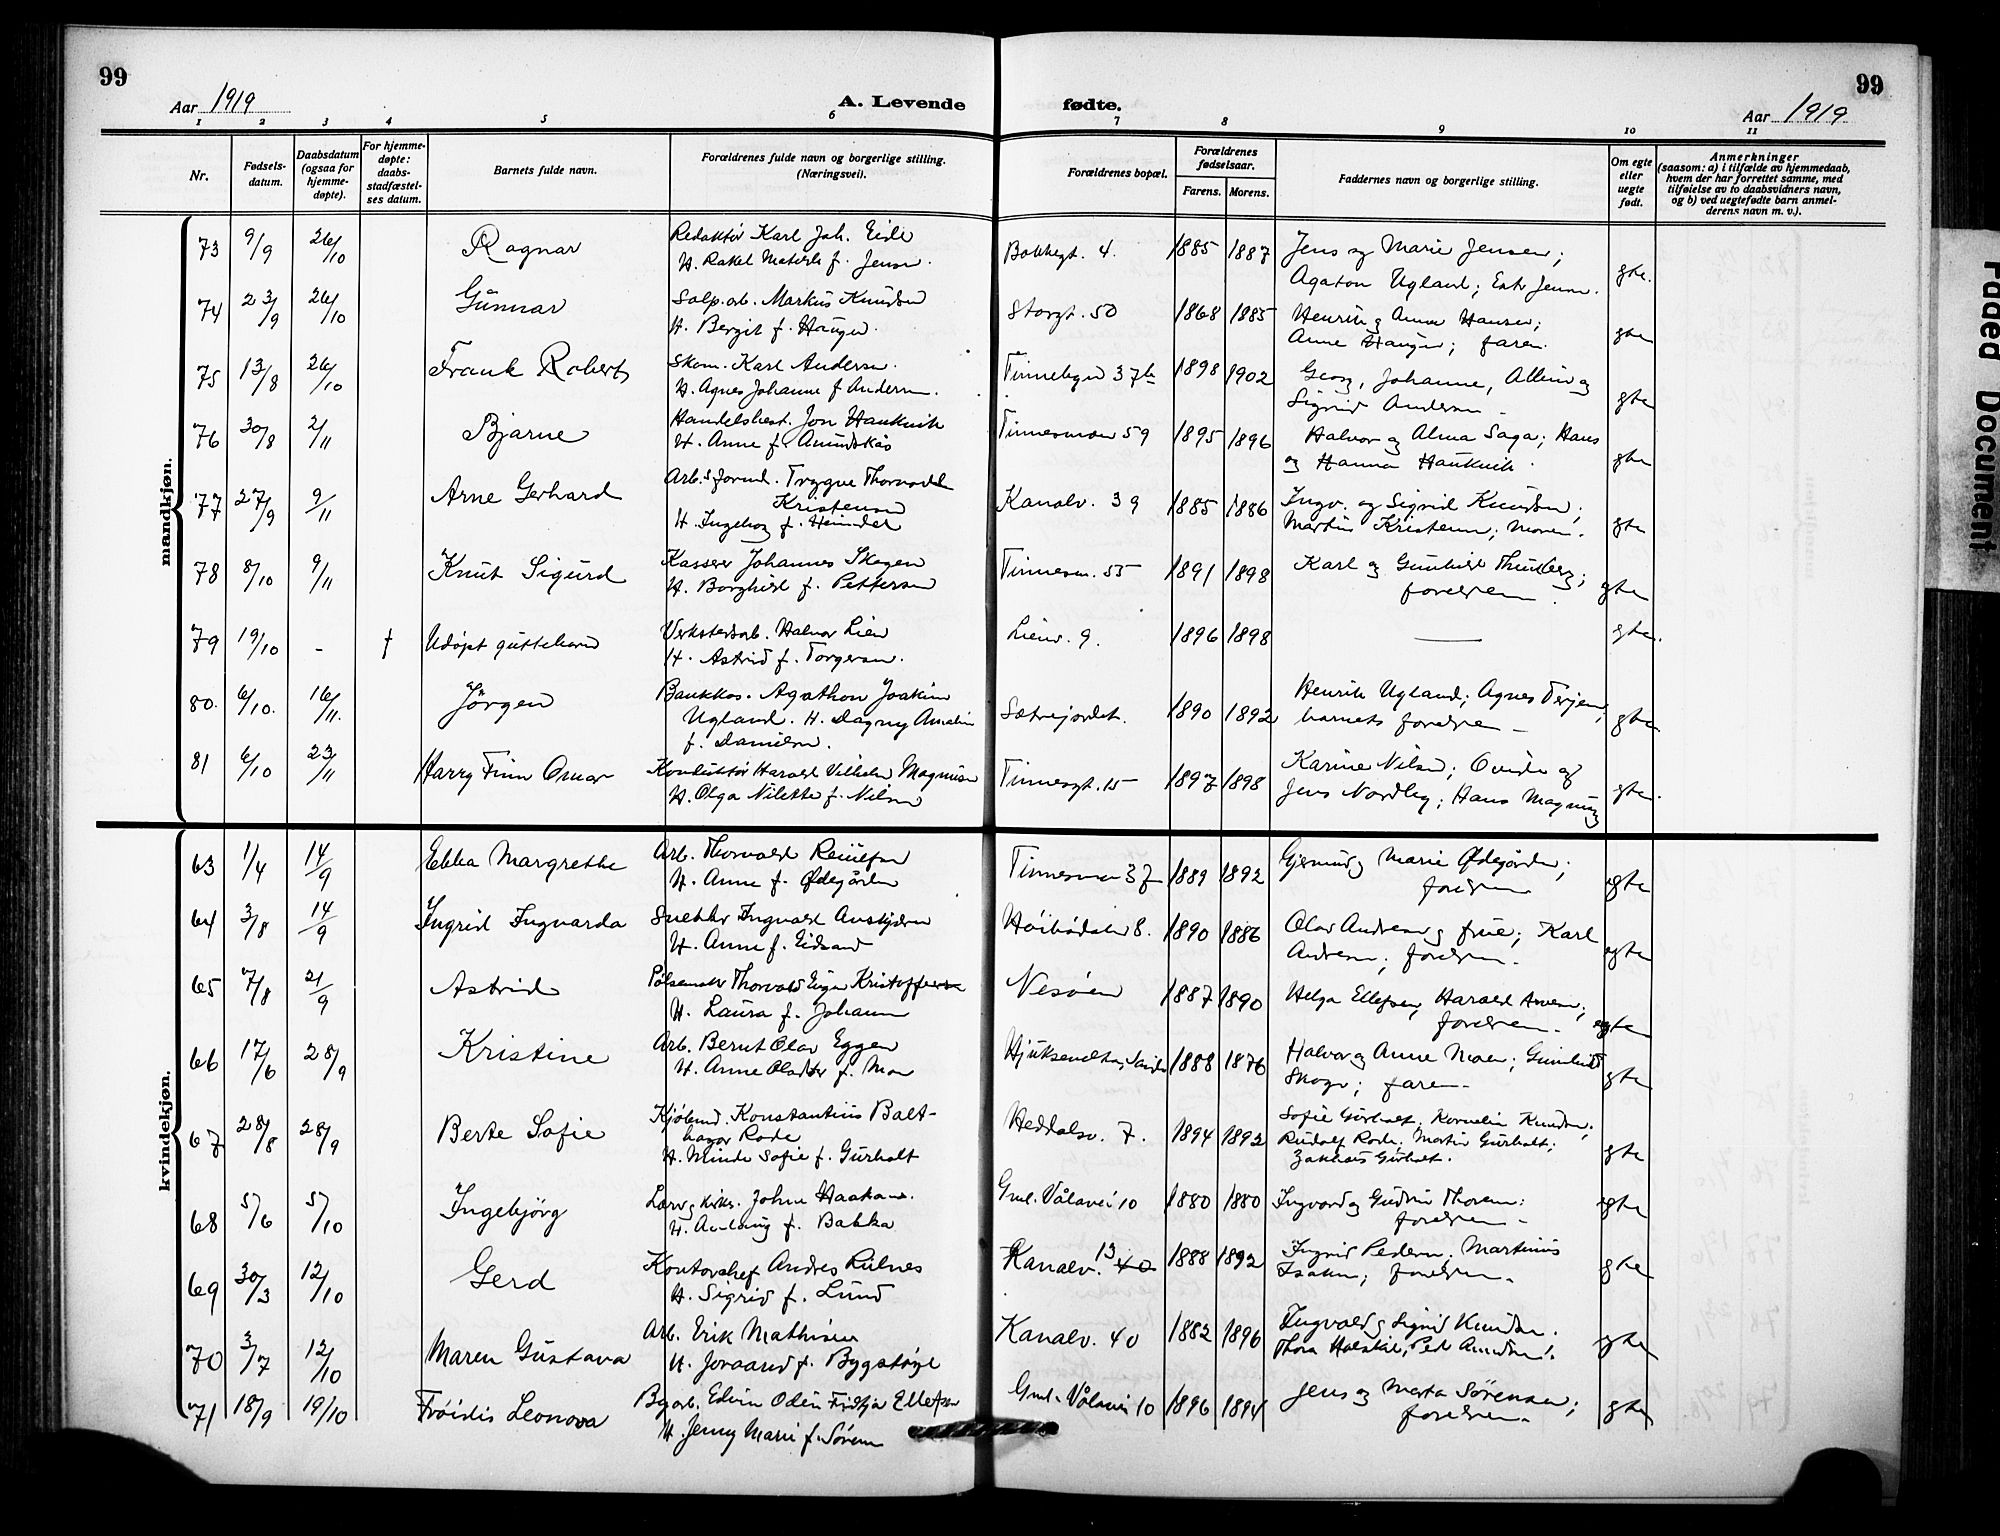 99
99
Aar 1919
A. Levende
fødte.
Aar 1919
1 2 3 4 5 6 7 8 9 10 11
Nr.
Fødsels-
datum.
Daabsdatum
(ogsaa for
hjemme-
døpte).
For hjemme-
døpte:
daabs-
stadfæstel-
ses datum.
Barnets fulde navn.
Forældrenes fulde navn og borgerlige stilling.
(Næringsvei).
Forældrenes bopæl.
Forældrenes
fødselsaar.
Farens. Morens.
Faddernes navn og borgerlige stilling.
Om egte
eller
uegte
født.
Anmerkninger
(saasom: a) i tilfælde av hjemmedaab,
hvem der har forrettet samme, med
tilføielse av to daabsvidners navn,
og b) ved uegtefødte barn anmel-
derens navn m. v.).
mandkjøn.
73 9/9 26/10 Ragnar Redaktør Karl Joh. Eide Bakkegt. 4. 1885 1887 Jens og Marie Jensen; gte.
H. Rakel f. Jensen. Agaton Ugland; Jensen.
74 23/9 26/10 Gunnar Salp.arb. Markus Knudsen Storgt. 50 1868 1885 Henrik og Anna Hansen; gte
H. Bergit f. Haugen. Anne Haugen; faren.
75 13/8 26/10 Frank Robert Skom. Karl Andersen. Tinnebyen 37b 1898 1902 Georg, Johanne, og gte
H. Agnes Johanne f. Andersen. Sigrid Andersen
76 30/8 2/11 Bjarne Handelsbest. Jon Haukvik Tinnesmoen 59 1895 1896 Halvor og Alma Saga; Hans gte
H. Anne f. Amundskås og Hanna Haukvik.
77 27/9 9/11 Arne Gerhard Arb.s formd. Trygve Thorvald Kanalv. 39 1885 1886 Ingv. og Sigrid Knudsen; gte
Kristensen
H. Ingeborg f. Heimdal Martin Kristensen; moren.
78 8/10 9/11 Knut Sigurd Kasserer Johannes Skogen Tinnesm. 55 1891 1898 Karl og Gunhild Thunberg; gte
H. Borghild f. Pettersen foreldrene.
79 19/10 - † Udøpt guttebarn Verkstedsarb. Halvor Lien Lienv. 9. 1896 1898 — gte.
H. Astrid f. Torgersen.
80. 6/10. 16/11. Jørgen Bankkas. Agathon Joakim Sætrejordet. 1890 1892 Henrik Ugland; Agnes Terjesen; gte
Ugland. H. Dagny Amalie barnets foreldre
f. Danielsen.
81 6/10 23/11 Harry Finn Omar Konduktør Harald Vilhelm Magnusen Tinnesgt. 15 1897 1898 Karine Nilsen; og gte.
H. Olga Nilette f. Nilsen Jens Nordby; Hans Magnusen
kvindekjøn.
63 1/4 14/9 Ebba Margrethe Arb. Thorvald Tinnesmoen 37 1889 1892 Gjermund og Marie Ødegården; egte
H. Anne f. Ødegården foreldrene
64 3/8 14/9 Ingrid Ingvarda Snekker Ingvald Auskjæren Høibødalen 8. 1890 1886 Olav Andersen og frue; Karl egte
H. Anne f. Eidsand Andersen; foreldrene.
65 7/8 21/9 Astrid Pølsemaker Thorvald Kristoffersen Nesøen 1887 1890 Helga Ellefsen, Harald egte
H. Laura f. Johansen foreldrene.
66 17/6 28/9 Kristine Arb. Bernt Olav Eggen 1888 1876 Halvor og Anne Moen; Gunhild gte
H. Anne f. Moe Skogen; faren.
67 28/8 28/9 Berte Sofie Kjøbmd. Konstantius Balt- Heddalsv. 7. 1894 1892 Sofie Gurholt; Kornelia Knudsen; gte
hazar Rode Rudolf Rode; Martin Gurholt;
H. Minda Sofie f. Gurholt Zakkæus Gurholt.
68 5/6 5/10 Ingebjørg Johan Haakansen. Gml. Vålavei 10 1880 1880 Ingvard og Gudrun Thoresen; egte
H. f. Bakka foreldrene
69 30/3 12/10 Gerd Kontorchef Andres Lilnes Kanalv. 13 40 1888 1892 Ingrid Pedersen; Martinius gte
H. Sigrid f. Lund Isaksen; foreldrene.
70 3/7 12/10 Maren Gustava Arb. Erik Mathisen Kanalv. 40 1882 1896 Ingvald og Sigrid Knudsen. egte
H. Joraand f. Bygstøyl Thora Holskil; Peder Amundsen.
71 18/9 19/10 Frøidis Leonora Byarb. Edvin Odin Fridtjov Ellefsen Gml. Vålavei 10 1896 1894 Jens og Marta Sørensen; gte
H. Jenny Marie f. Sørensen foreldrene.
Faded Document